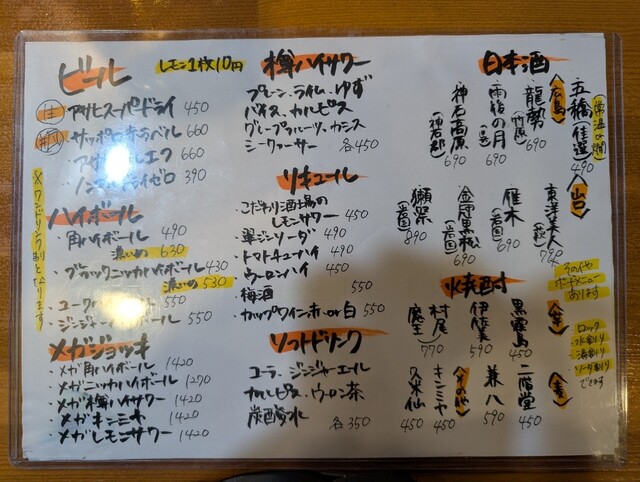 ビール
レモン1枚10円
生 アサヒスーパードライ 450
サッポロ赤ラベル 660
660
390
※ワンドリンクおとなります
ハイボール
・角ハイボール 490
濃いめ 630
・ブラックニッカハイボール 430
濃いめ 530
550
・ジンジャー 550
メガジョッキ
・メガ角ハイボール 1420
・メガニッカハイボール 1270
・メガ樽ハイサワー 1420
・メガキンミヤ 1420
・メガレモンサワー 1420
樽ハイサワー
プレーン、ライム、ゆず
バイス、カルピス
グレープフルーツ、カシス
シークァーサー 各450
リキュール
・こだわり酒場の
レモンサワー 450
・翠ジンソーダ 490
・トマトチューハイ 490
・ウーロンハイ 450
・梅酒 550
・カップワイン赤or白 550
ソフトドリンク
コーラ、ジンジャーエール
カルピス、ウーロン茶
炭酸水 各350
日本酒
五橋佳選 490
(常温or燗)
〈広島〉
龍勢(竹原) 690
雨後の月(呉) 690
神石高原(神石郡) 690
〈山口〉
東洋美人(萩)
雁木(岩国) 690
金冠黒松(岩国) 690
獺祭(岩国) 890
焼酎
そのイや
ボードメニュー
あります
〈芋〉
黒霧島 450
伊佐美 590
村尾 770
魔王
〈麦〉
二階堂 450
兼八 590
〈その他〉
キンミヤ 450
久米仙 450
ロック
水割り
湯割り
ソーダ割り
できます